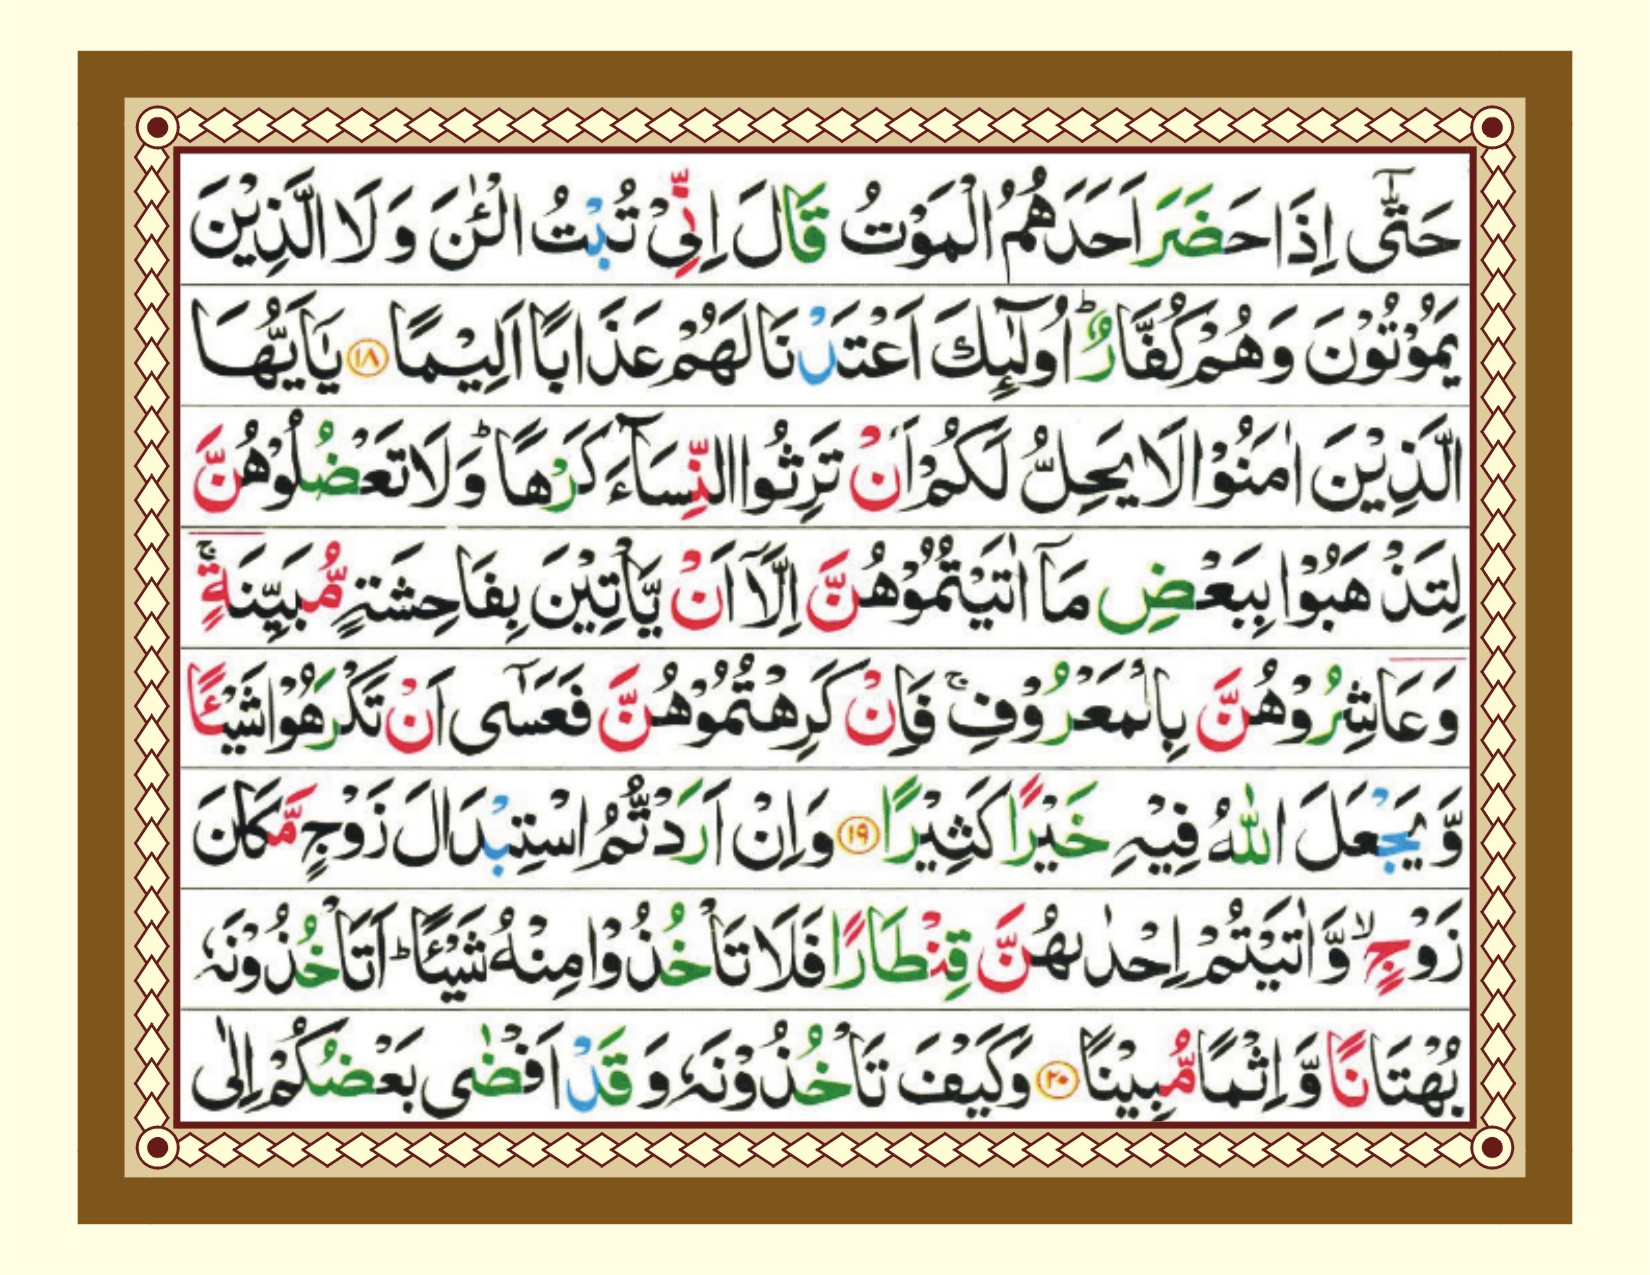 حَتّٰۤى اِذَا حَضَرَ اَحَدَهُمُ الْمَوْتُ قَالَ اِنِّىْ تُبْتُ الْـٰٔنَ وَ لَا الَّذِيْنَ
يَمُوْتُوْنَ وَهُمْ كُفَّارٌؕ اُولٰٓئِكَ اَعْتَدْنَا لَهُمْ عَذَابًا اَلِيْمًا ﴿۱۸﴾ يٰۤاَيُّهَا
الَّذِيْنَ اٰمَنُوْا لَا يَحِلُّ لَكُمْ اَنْ تَرِثُوا النِّسَآءَ كَرْهًاؕ وَلَا تَعْضُلُوْهُنَّ
لِتَذْهَبُوْا بِبَعْضِ مَاۤ اٰتَيْتُمُوْهُنَّ اِلَّاۤ اَنْ يَّاْتِيْنَ بِفَاحِشَةٍ مُّبَيِّنَةٍۚ
وَعَاشِرُوْهُنَّ بِالْمَعْرُوْفِۚ فَاِنْ كَرِهْتُمُوْهُنَّ فَعَسٰۤى اَنْ تَكْرَهُوْا شَيْـًٔا
وَّيَجْعَلَ اللّٰهُ فِيْهِ خَيْرًا كَثِيْرًا ﴿۱۹﴾ وَاِنْ اَرَدْتُّمُ اسْتِبْدَالَ زَوْجٍ مَّكَانَ
زَوْجٍۙ وَّاٰتَيْتُمْ اِحْدٰٮهُنَّ قِنْطَارًا فَلَا تَاْخُذُوْا مِنْهُ شَيْـًٔاؕ اَتَاْخُذُوْنَهٗ
بُهْتَانًا وَّاِثْمًا مُّبِيْنًا ﴿۲۰﴾ وَكَيْفَ تَاْخُذُوْنَهٗ وَقَدْ اَفْضٰى بَعْضُكُمْ اِلٰى